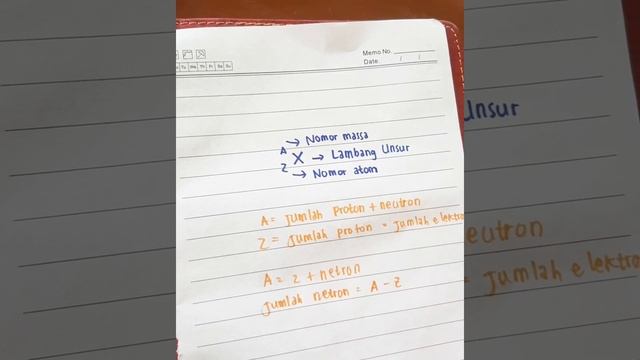 Memo No.
Date / /
Mo Tu We Th Fr Sa Su
A → Nomor massa
X → Lambang Unsur
Z → Nomor atom
A = Jumlah proton + neutron
Z = Jumlah proton = Jumlah elektro
A = Z + netron
Jumlah netron = A - Z
Unsur
eutron
= Jumlah elektro